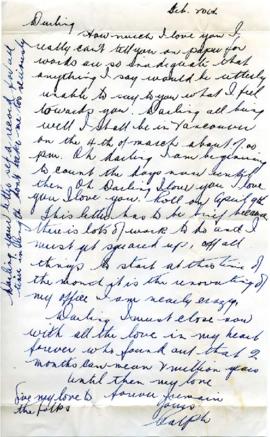 Feb. 20th
Darling
How much I love you I
really can't tell you on paper for
words are so inadiquate that
anything I say would be utterly
unable to say to you what I feel
towards you. Darling all being
well I shall be in Vancouver
on the 4th of march about 7.00
p.m. Oh Darling I am beginning
to count the days now until
then Oh Darling I love you I love
you I love you.
This letter has to be brief because
there is lots of work to do and I
must get squared up, off all
things to start at this time of
the month it is the renovating of
my office I am nearly crazy,
Darling I must close now
with all the love in my heart
forever who found out that 2
months can mean 2 million years
until then my love
Give my love to forever remain
the Folks yours
Ralph
Darling your letters set a record